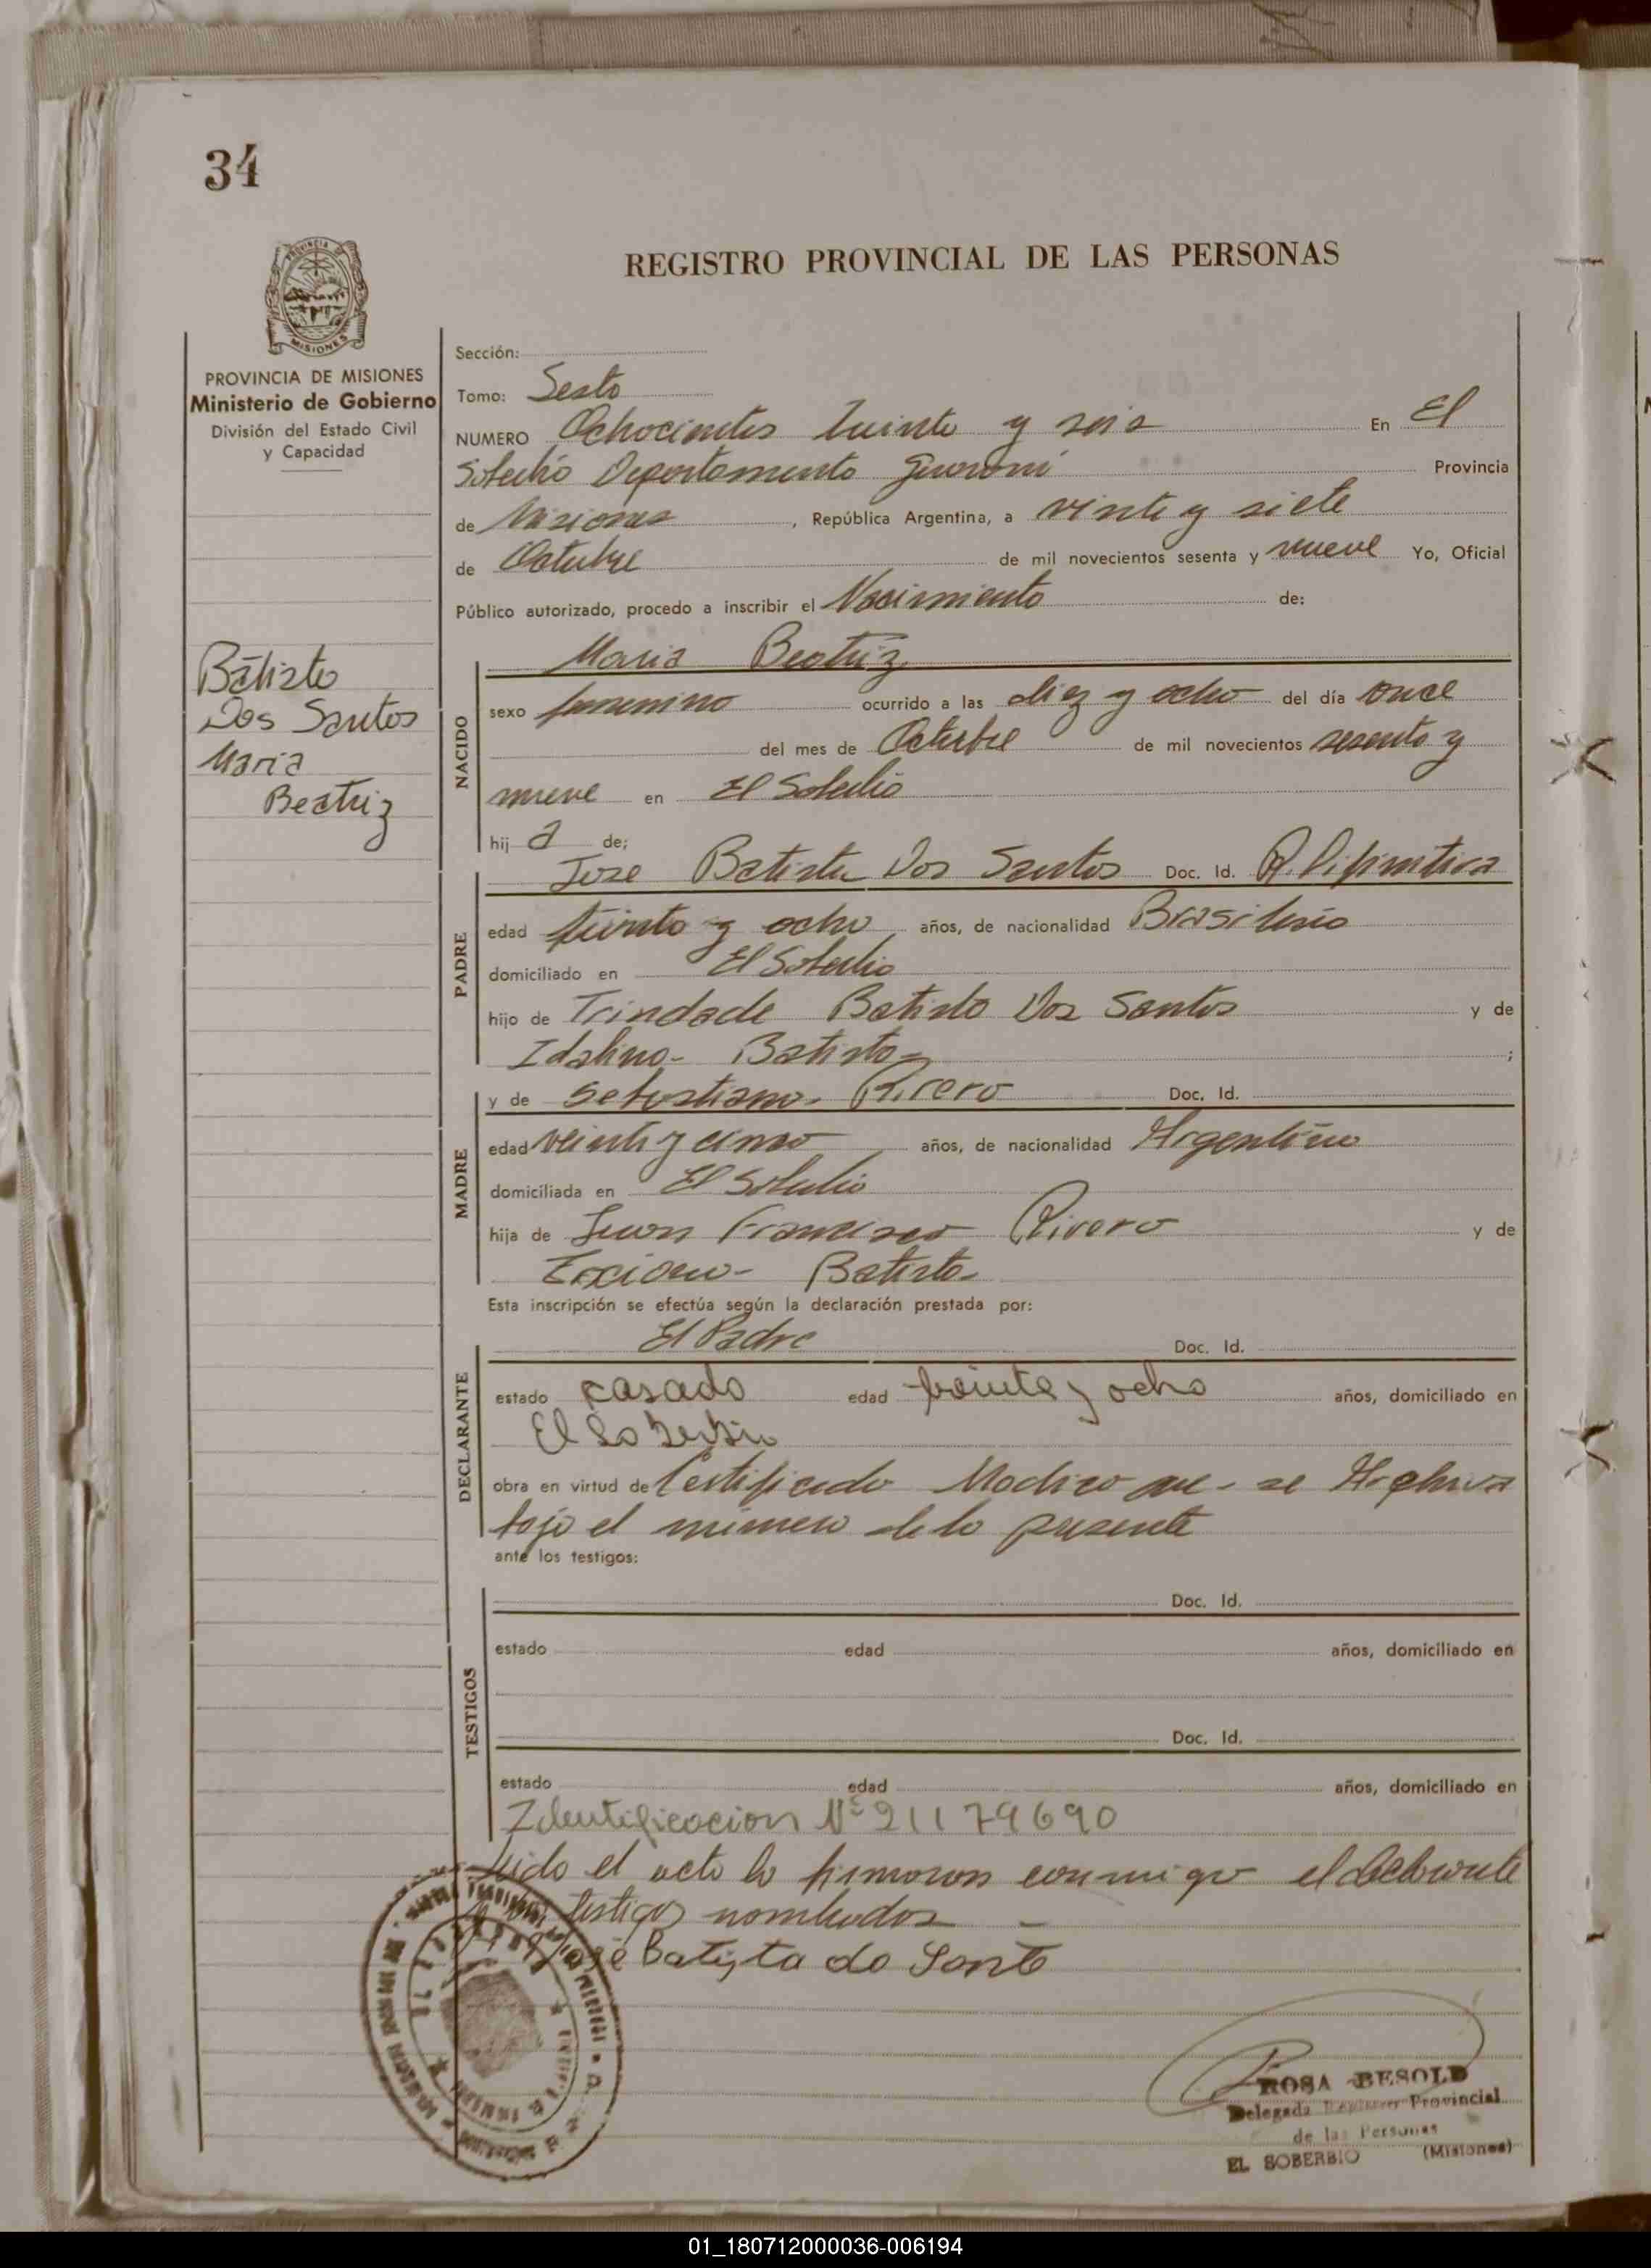 34
REGISTRO PROVINCIAL DE LAS PERSONAS
PROVINCIA DE
MISIONES
PROVINCIA DE MISIONES
Ministerio de Gobierno
División del Estado Civil
y Capacidad
Batista
Dos Santos
Maria
Beatriz
Sección:
Tomo: Sesto
NUMERO Ochocientos treinta y seis En El
Soberbio Departamento Guarani Provincia
de Misiones, República Argentina, a vinte y siete
de Octubre de mil novecientos sesenta y nueve Yo, Oficial
Público autorizado, procedo a inscribir el Nacimiento de:
NACIDO
Maria Beatriz
sexo femenino ocurrido a las diez y ocho del día once
del mes de Octubre de mil novecientos sesenta y
nueve en El Soberbio
hij a de;
PADRE
Jose Batista Dos Santos Doc. Id.
edad treinta y ocho años, de nacionalidad Brasileño
domiciliado en El Soberbio
hijo de Trindade Batista Dos Santos y de
Idalina Batista ;
MADRE
y de Sebastiana Rivero Doc. Id.
edad veinti y cinco años, de nacionalidad Argentina
domiciliada en El Soberbio
hija de Juan Francisco Rivero y de
Batista
Esta inscripción se efectúa según la declaración prestada por:
DECLARANTE
El Padre Doc. Id.
estado casado edad treinta y ocho años, domiciliado en
El Soberbio
obra en virtud de Certificado Medico que se Archiva
bajo el numero de la presente
ante los testigos:
TESTIGOS
Doc. Id.
estado edad años, domiciliado en
Doc. Id.
estado edad años, domiciliado en
Identificacion Nº 21179690
Leido el acta la firmaron conmigo el declarante
testigos nombrados
José Batista do Santo
ROSA BESOLD
Delegada Provincial
de las Personas
EL SOBERBIO (Misiones)
01_180712000036-006194